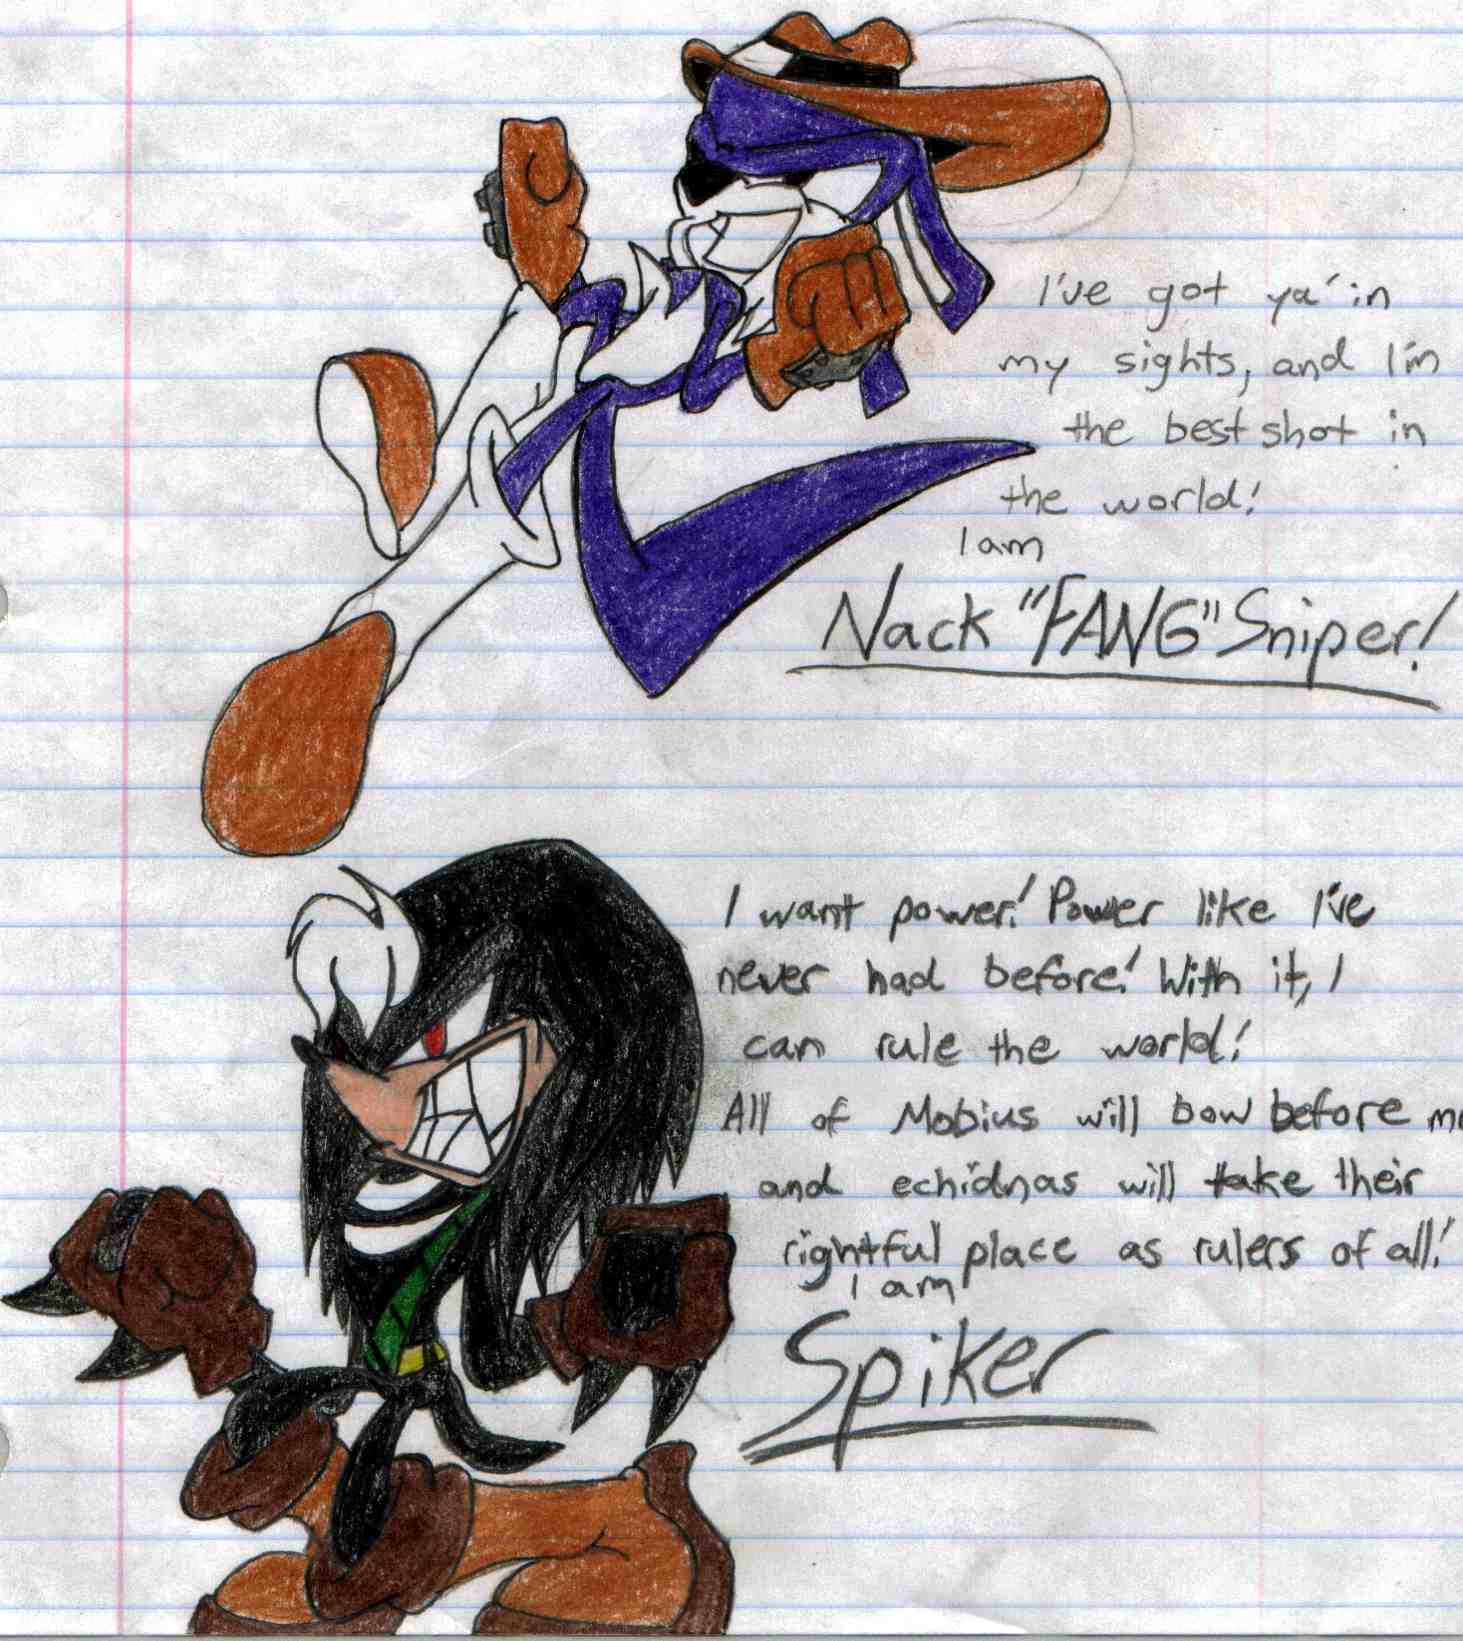 I've got ya' in
my sights, and I'm
the best shot in
the world!
I am
Nack "FANG" Sniper!
I want power! Power like I've
never had before! With it, I
can rule the world!
All of Mobius will bow before me
and echidnas will take their
rightful place as rulers of all!
I am
Spiker